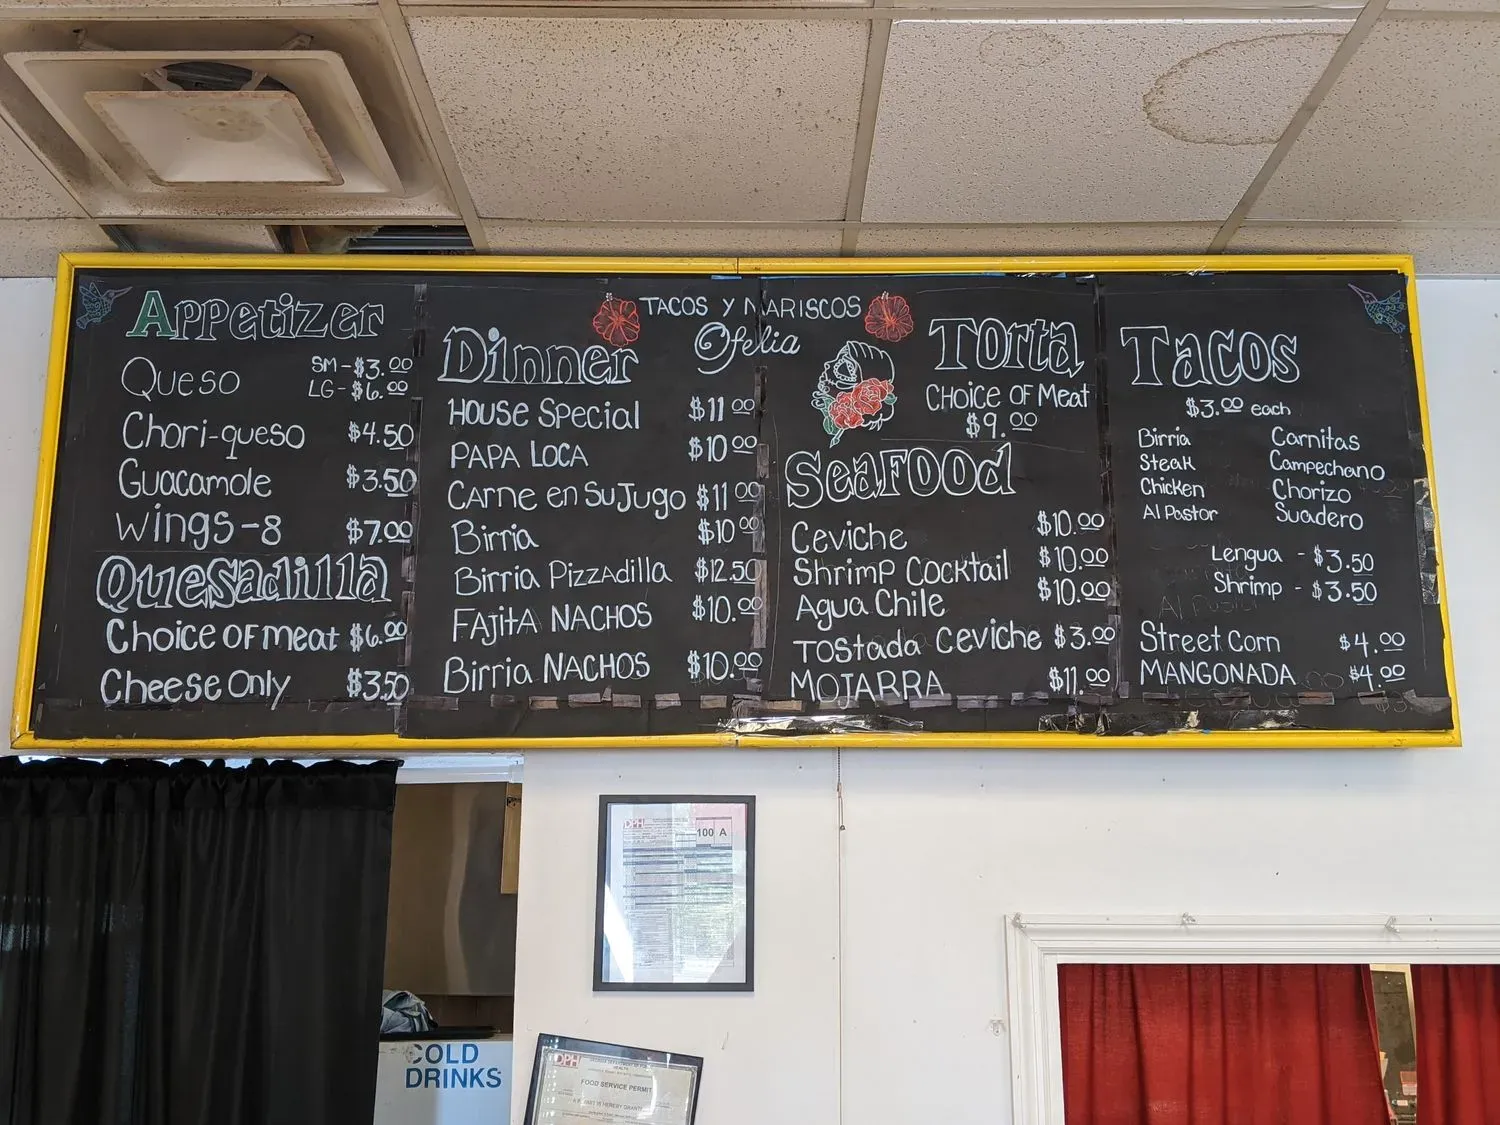 TACOS Y MARISCOS
Ofelia
Appetizer
Queso SM-$3.00
LG-$6.00
Chori-queso $4.50
Guacamole $3.50
Wings-8 $7.00
Quesadilla
Choice of meat $6.00
Cheese Only $3.50
Dinner
House Special $11.00
PAPA LOCA $10.00
Carne en Su Jugo $11.00
Birria $10.00
Birria Pizzadilla $12.50
FAJITA NACHOS $10.00
Birria NACHOS $10.00
Torta
CHOICE OF Meat
$9.00
Seafood
Ceviche $10.00
Shrimp Cocktail $10.00
Agua Chile $10.00
Tostada Ceviche $3.00
MOJARRA $11.00
Tacos
$3.00 each
Birria Carnitas
Steak Campechano
Chicken Chorizo
Al Pastor Suadero
Lengua - $3.50
Shrimp - $3.50
Street Corn $4.00
MANGONADA $4.00
DPH
100 A
COLD
DRINKS
DPH
FOOD SERVICE PERMIT